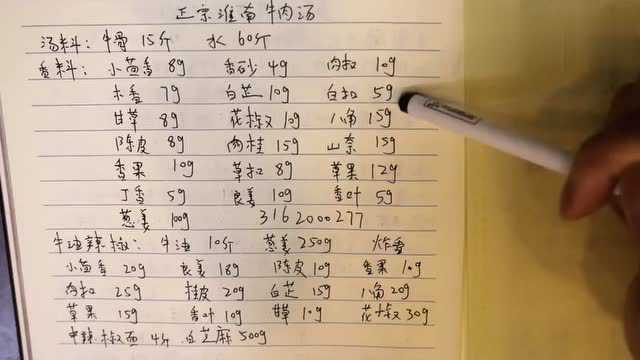 正宗淮南牛肉汤
汤料：牛骨 15斤 水 60斤
香料：小茴香 8g 香砂 4g 肉扣 10g
木香 7g 白芷 10g 白扣 5g
甘草 8g 花椒 10g 八角 15g
陈皮 8g 肉桂 15g 山奈 15g
香果 10g 草扣 8g 草果 12g
丁香 5g 良姜 10g 香叶 5g
葱姜 100g 3162000277
牛油辣椒：牛油 10斤 葱姜 250g 炸香
小茴香 20g 良姜 18g 陈皮 10g 香果 10g
肉扣 25g 桂皮 20g 白芷 15g 八角 20g
草果 15g 香叶 10g 甘草 10g 花椒 30g
中辣椒面 4斤 白芝麻 500g